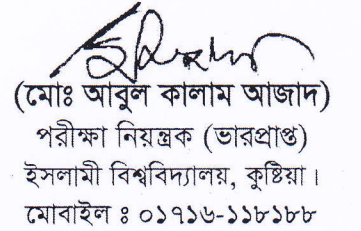 (মোঃ আবুল কালাম আজাদ)
পরীক্ষা নিয়ন্ত্রক (ভারপ্রাপ্ত)
ইসলামী বিশ্ববিদ্যালয়, কুষ্টিয়া।
মোবাইল ঃ ০১৭১৬-১১৮১৮৮